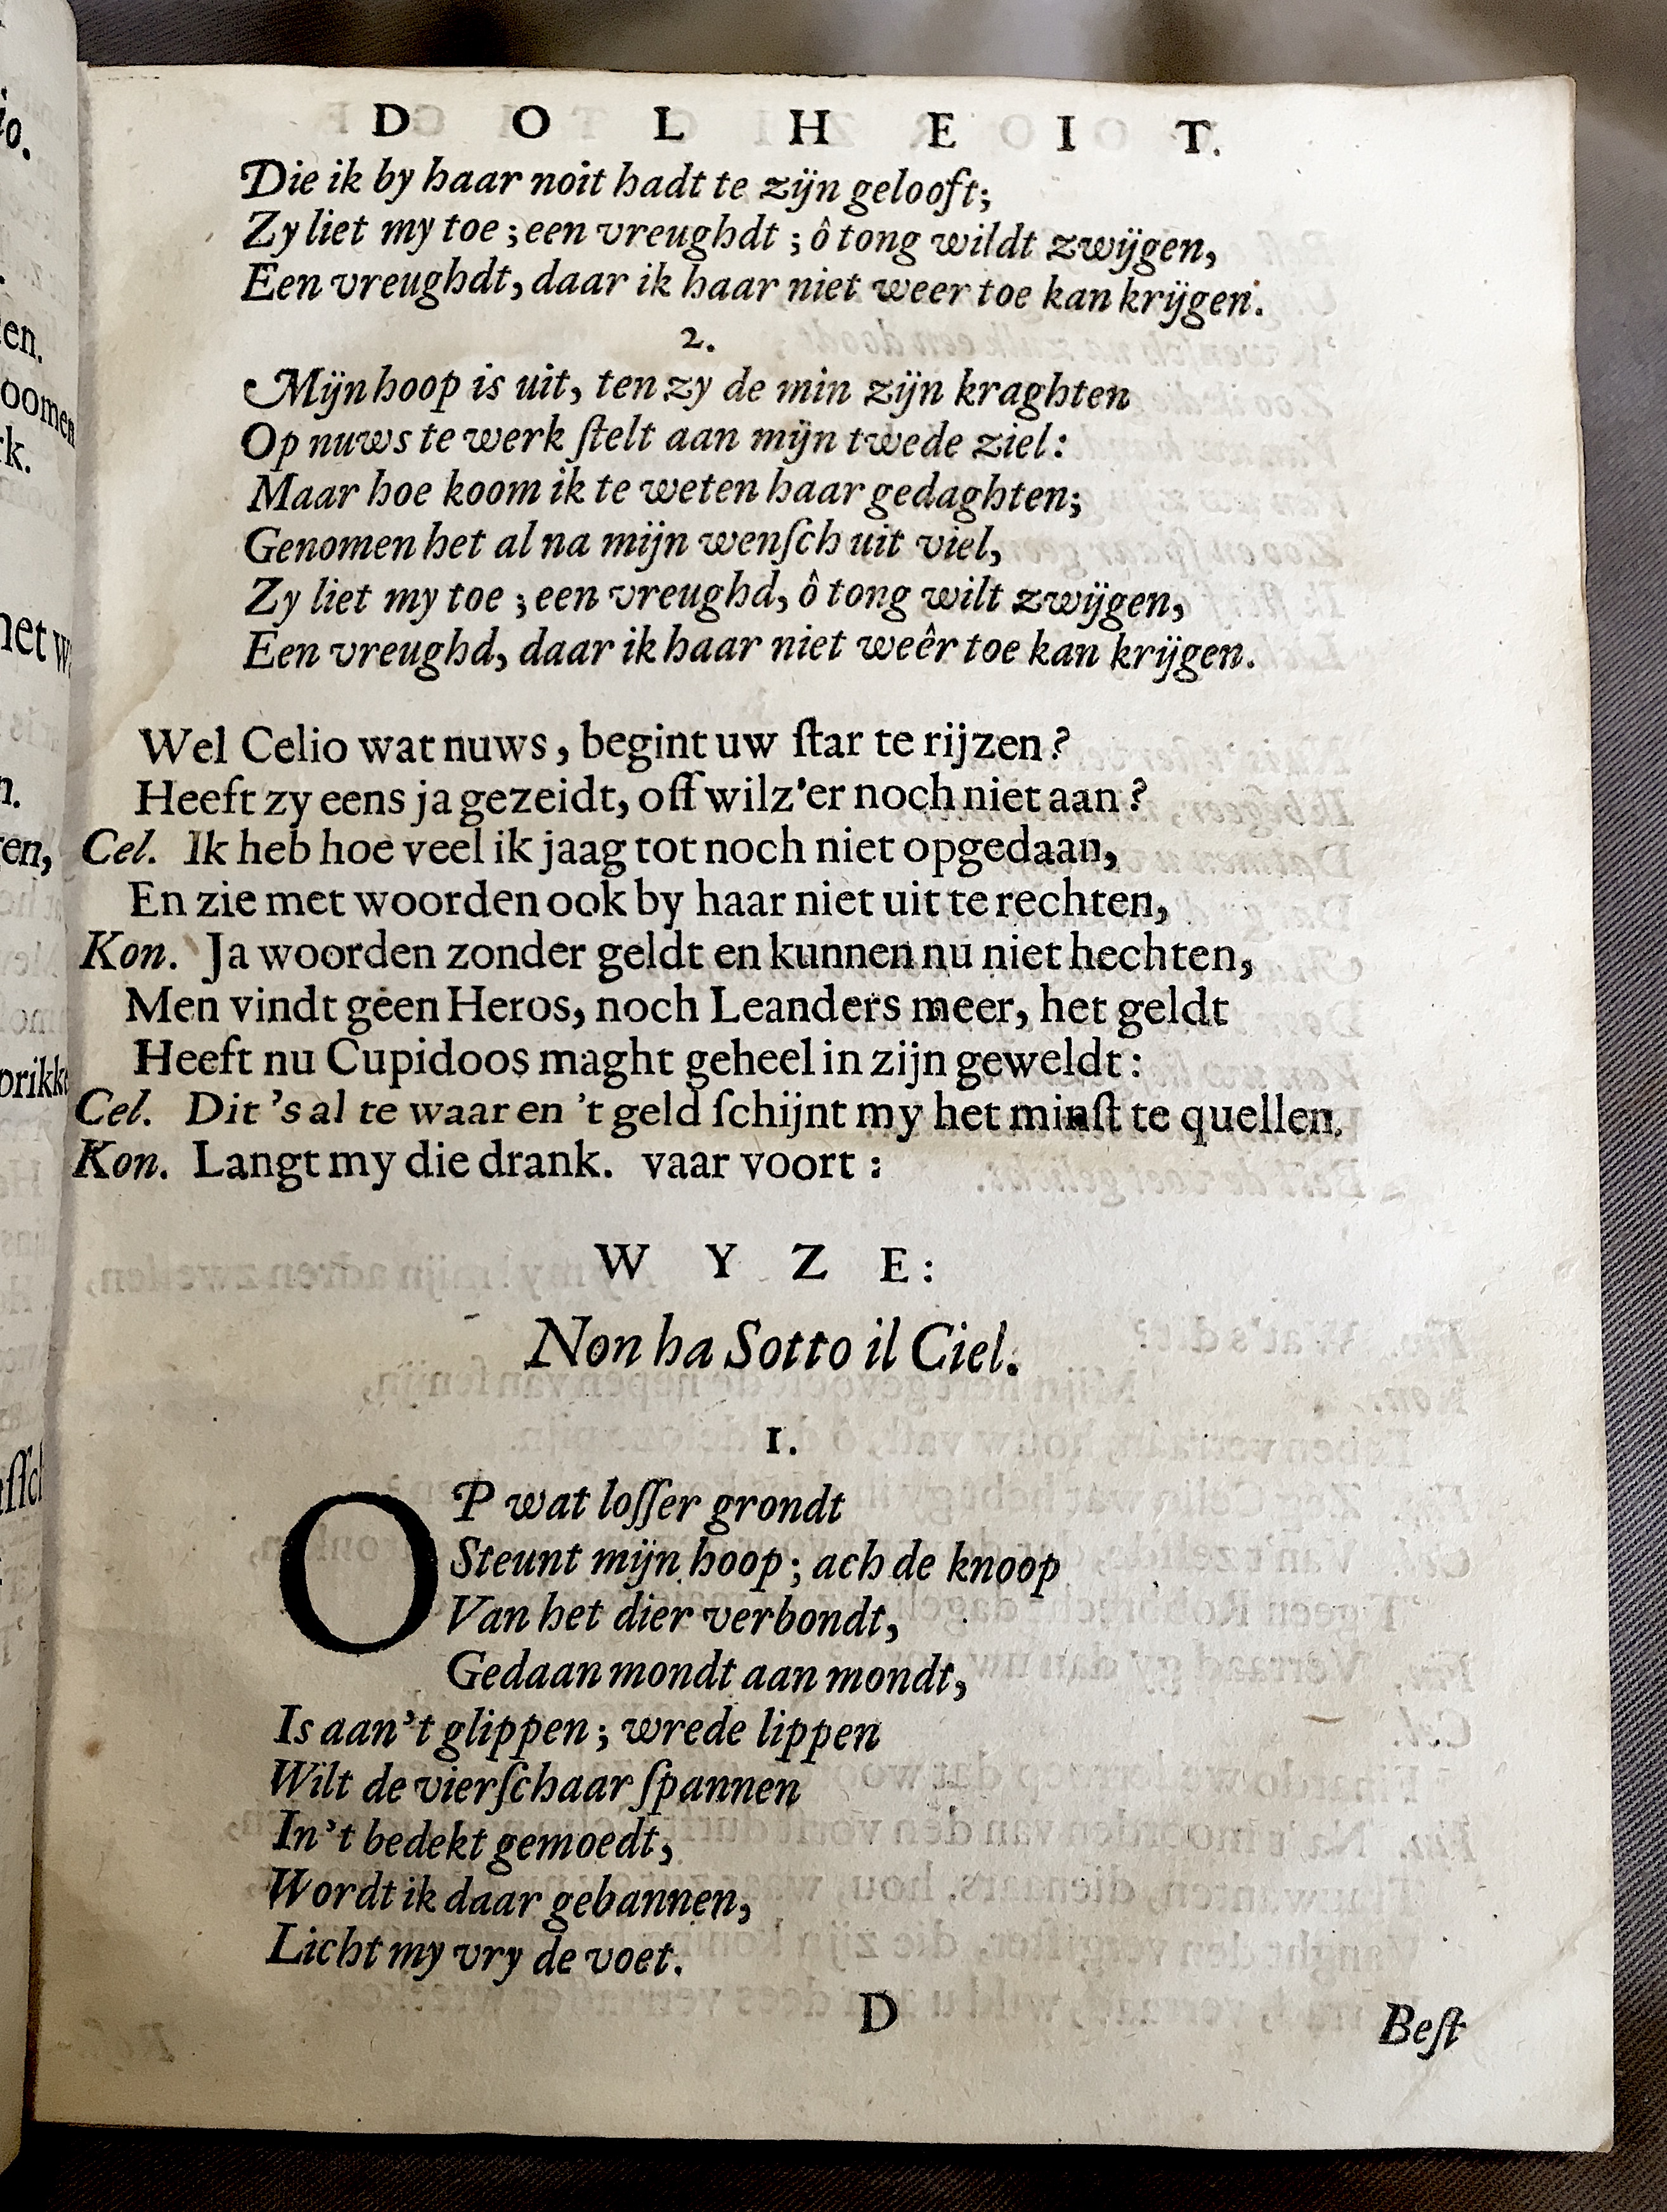 D O L H E I T.
Die ik by haar noit hadt te zijn gelooft;
Zy liet my toe; een vreughdt; ô tong wildt zwijgen,
Een vreughdt, daar ik haar niet weer toe kan krijgen.
2.
Mijn hoop is uit, ten zy de min zijn kraghten
Op nuws te werk ſtelt aan mijn twede ziel:
Maar hoe koom ik te weten haar gedaghten;
Genomen het al na mijn wenſch uit viel,
Zy liet my toe; een vreughd, ô tong wilt zwijgen,
Een vreughd, daar ik haar niet weêr toe kan krijgen.
Wel Celio wat nuws, begint uw ſtar te rijzen?
Heeft zy eens ja gezeidt, off wilz'er noch niet aan?
Cel. Ik heb hoe veel ik jaag tot noch niet opgedaan,
En zie met woorden ook by haar niet uit te rechten,
Kon. Ja woorden zonder geldt en kunnen nu niet hechten,
Men vindt geen Heros, noch Leanders meer, het geldt
Heeft nu Cupidoos maght geheel in zijn geweldt:
Cel. Dit 's al te waar en 't geld ſchijnt my het minſt te quellen.
Kon. Langt my die drank. vaar voort:
W Y Z E:
Non ha Sotto il Ciel.
1.
OP wat loſſer grondt
Steunt mijn hoop; ach de knoop
Van het dier verbondt,
Gedaan mondt aan mondt,
Is aan't glippen; wrede lippen
Wilt de vierſchaar ſpannen
In't bedekt gemoedt,
Wordt ik daar gebannen,
Licht my vry de voet.
D
Beſt